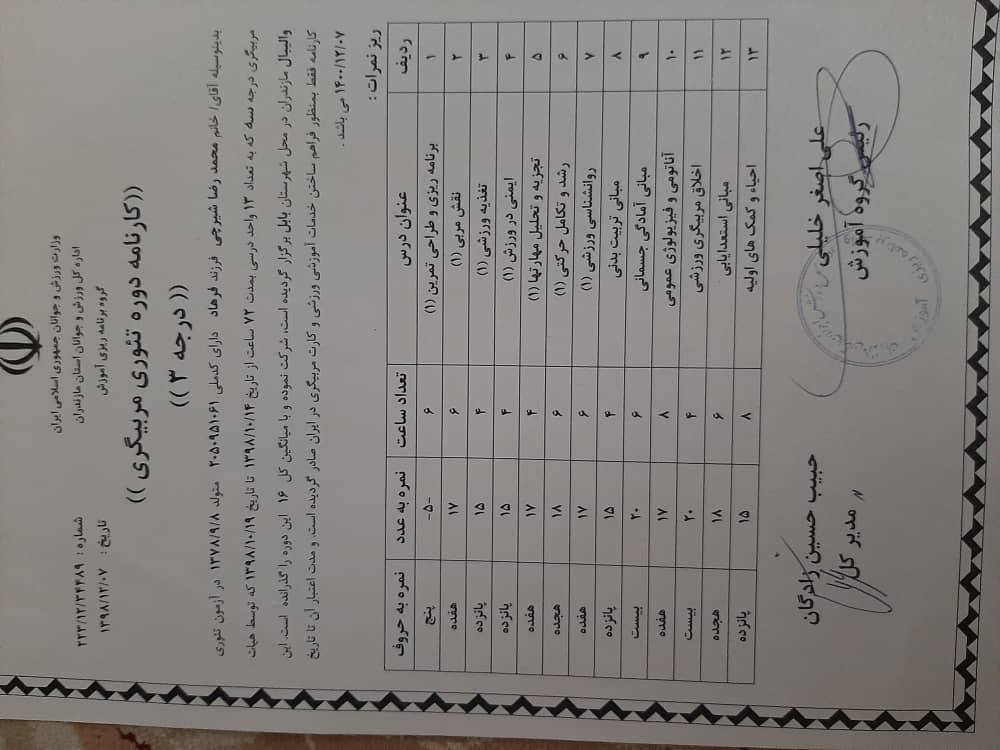 وزارت ورزش و جوانان جمهوری اسلامی ایران
اداره کل ورزش و جوانان استان مازندران
گروه برنامه ریزی آموزش
شماره : ۲۲۳/۱۲/۳۴۴۸۹
تاریخ : ۱۳۹۸/۱۲/۰۷
((کارنامه دوره تئوری مربیگری ))
(( درجه ۳ ))
بدینوسیله آقای/ خانم محمد رضا شیرجی فرزند فرهاد دارای کدملی ۲۰۵۰۹۵۱۰۶۱ متولد ۱۳۷۸/۹/۸ در آزمون تئوری
مربیگری درجه سه که به تعداد ۱۳ واحد درسی بمدت ۷۲ ساعت از تاریخ ۱۳۹۸/۱۰/۱۴ تا تاریخ ۱۳۹۸/۱۰/۱۹ که توسط هیات
والیبال مازندران در محل شهرستان بابل برگزار گردیده است، شرکت نموده و با میانگین کل ۱۶ این دوره را گذرانده است. این
کارنامه فقط بمنظور فراهم ساختن خدمات آموزشی ورزشی و کارت مربیگری در ایران صادر گردیده است. و مدت اعتبار آن تا تاریخ
۱۴۰۰/۱۲/۰۷ می باشد .
ریز نمرات :
ردیف عنوان درس تعداد ساعت نمره به عدد نمره به حروف
۱ برنامه ریزی و طراحی تمرین (۱) ۶ -۵- پنج
۲ نقش مربی (۱) ۶ ۱۷ هفده
۳ تغذیه ورزشی (۱) ۴ ۱۵ پانزده
۴ ایمنی در ورزش (۱) ۴ ۱۵ پانزده
۵ تجزیه و تحلیل مهارتها (۱) ۴ ۱۷ هفده
۶ رشد و تکامل حرکتی (۱) ۶ ۱۸ هجده
۷ روانشناسی ورزشی (۱) ۶ ۱۷ هفده
۸ مبانی تربیت بدنی ۴ ۱۵ پانزده
۹ مبانی آمادگی جسمانی ۶ ۲۰ بیست
۱۰ آناتومی و فیزیولوژی عمومی ۸ ۱۷ هفده
۱۱ اخلاق مربیگری ورزشی ۴ ۲۰ بیست
۱۲ مبانی استعدادیابی ۶ ۱۸ هجده
۱۳ احیاء و کمک های اولیه ۸ ۱۵ پانزده
علی اصغر خلیلی
رئیس گروه آموزش
حبیب حسین زادگان
مدیر کل